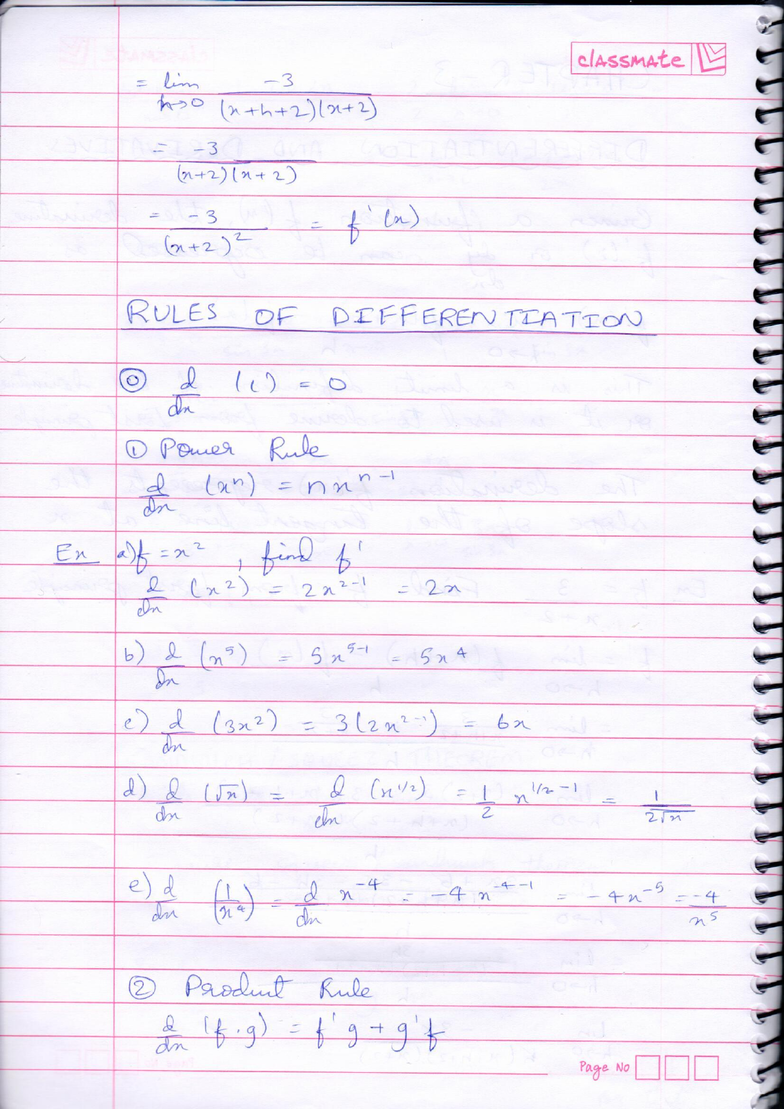 classmate
= lim -3
h→0 (x+h+2)(x+2)
= -3
(x+2)(x+2)
= -3 = f'(x)
(x+2)²
RULES OF DIFFERENTIATION
⓪ d/dx (c) = 0
① Power Rule
d/dx (xⁿ) = nxⁿ⁻¹
Ex a) f = x² , find f'
d/dx (x²) = 2x²⁻¹ = 2x
b) d/dx (x⁵) = 5x⁵⁻¹ = 5x⁴
c) d/dx (3x²) = 3(2x²⁻¹) = 6x
d) d/dx (√x) = d/dx (x^1/2) = 1/2 x^1/2-1 = 1/2√x
e) d/dx (1/x⁴) = d/dx x⁻⁴ = -4x⁻⁴⁻¹ = -4x⁻⁵ = -4/x⁵
② Product Rule
d/dx (f·g) = f'g + g'f
Page No